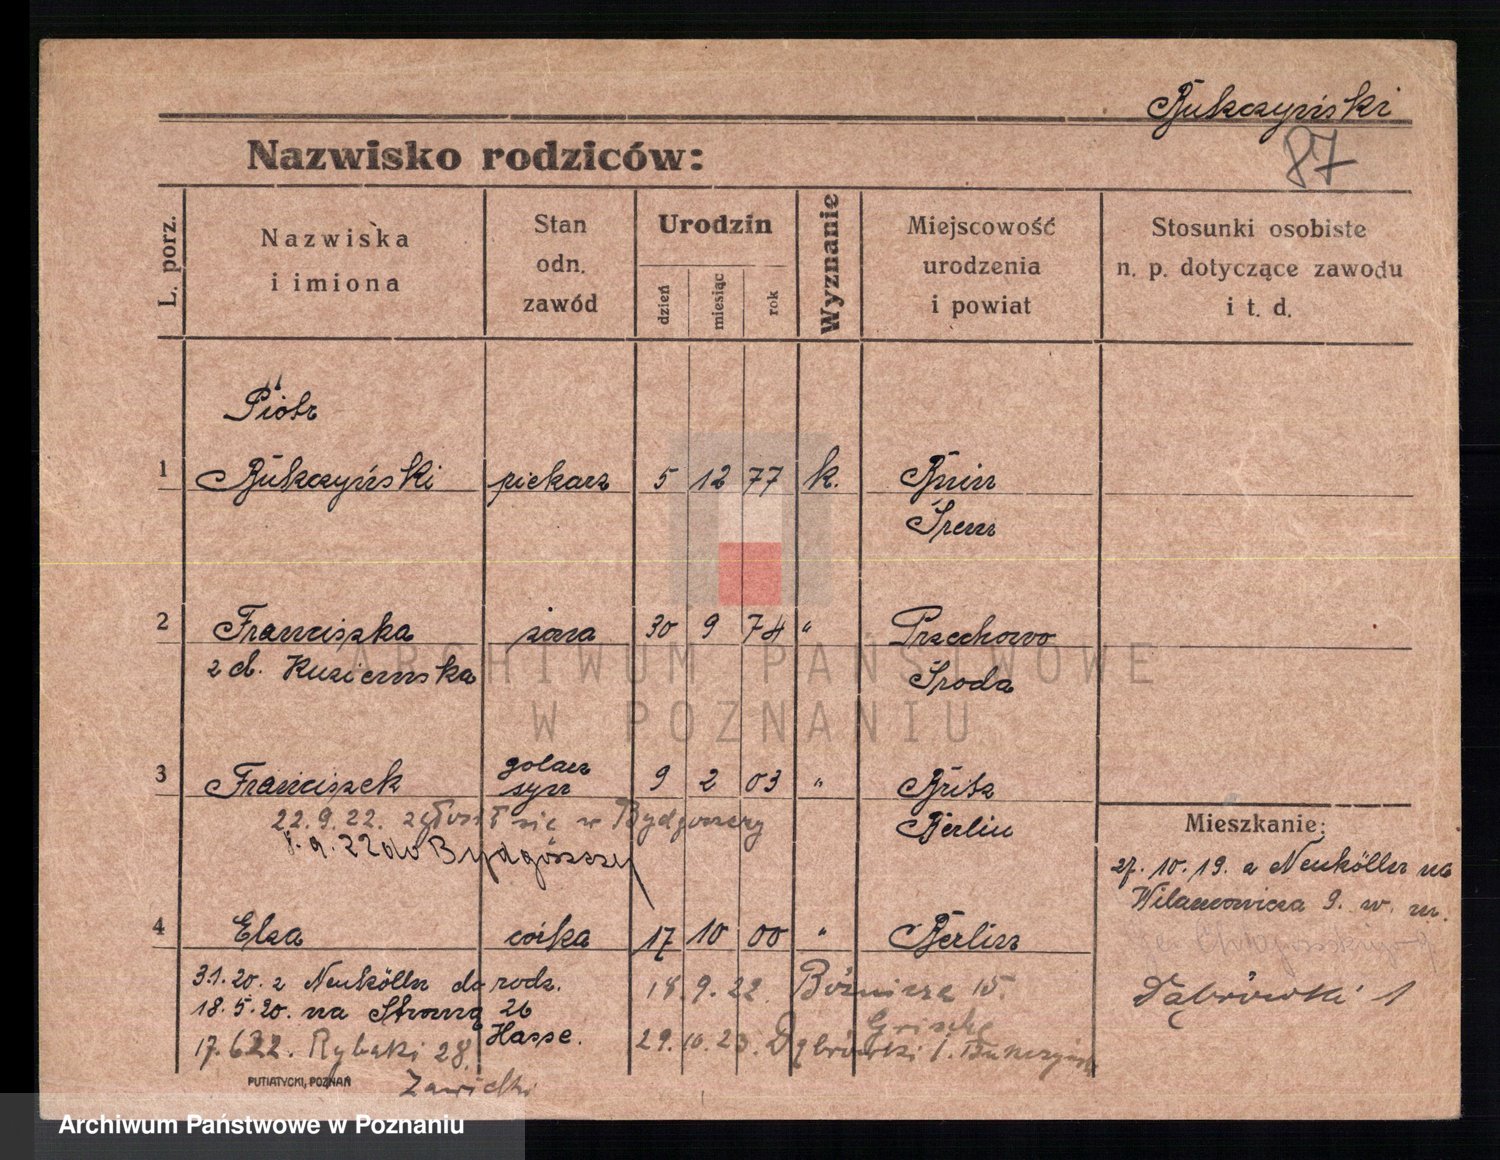 Bukczyński
87
Nazwisko rodziców:
L. porz.
Nazwiska
i imiona
Stan
odn.
zawód
Urodzin
dzień
miesiąc
rok
Wyznanie
Miejscowość
urodzenia
i powiat
Stosunki osobiste
n. p. dotyczące zawodu
i t. d.
Piotr
1 Bukczyński piekarz 5 12 77 k. Bnin
Śrem
2 Franciszka żona 30 9 74 " Przechowo
z d. Kuziemska Środa
3 Franciszek golarz syn 9 2 03 " Britz
Berlin
22.9.22. zgłosił się w Bydgoszczy
9.22 do Bydgoszczy
4 Elza córka 17 10 00 " Berlin
3.1.20. z Neukölln do rodz.
18.5.20. na Stromą 26
Hasse.
17.6.22. Rybaki 28.
Zawidki
18.9.22. Bóżnicza 15.
Grische
29.10.23. Dąbrówki 1. Bukczyński
Mieszkanie:
27.10.19. z Neukölln na
9. w. m.
Dąbrówki 1
PUTIATYCKI, POZNAŃ
ARCHIWUM PAŃSTWOWE
W POZNANIU
Archiwum Państwowe w Poznaniu